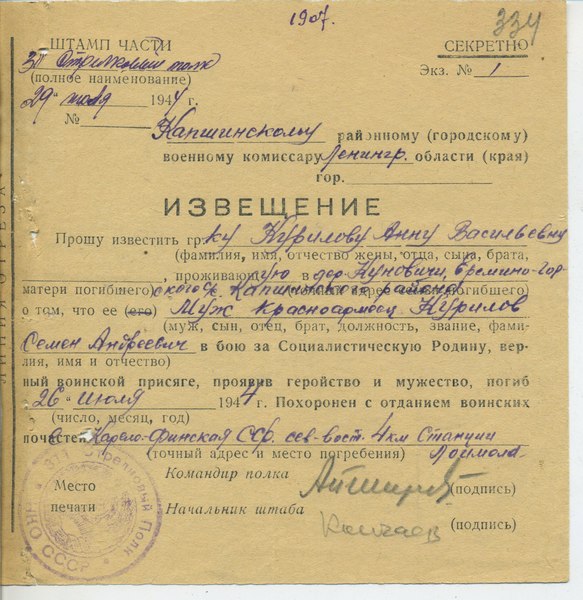 1907.
334
ШТАМП ЧАСТИ
СЕКРЕТНО
Стрелковый полк
Экз. № 1
(полное наименование)
29 " июля 1944 г.
№
Капшинскому районному (городскому)
военному комиссару Ленингр. области (края)
гор.
ИЗВЕЩЕНИЕ
Прошу известить гр-ку Курилову Анну Васильевну
(фамилия, имя, отчество жены, отца, сына, брата,
проживающую в дер. Куновичи, Еремино-Гор-
матери погибшего) ского с/с Капшинского района погибшего)
о том, что ее (его) Муж Красноармеец Курилов
(муж, сын, отец, брат, должность, звание, фами-
Семен Андреевич в бою за Социалистическую Родину, вер-
лия, имя и отчество)
ный воинской присяге, проявив геройство и мужество, погиб
26 " июля 1944 г. Похоронен с отданием воинских
(число, месяц, год)
почестей Карело-Финская ССР. сев-вост. 4 км Станции
(точный адрес и место погребения) Лоймола
Командир полка
(подпись)
Место
печати
Начальник штаба
(подпись)
Стрелковый Полк
НКО СССР
ЛИНИЯ ОТРЕЗА